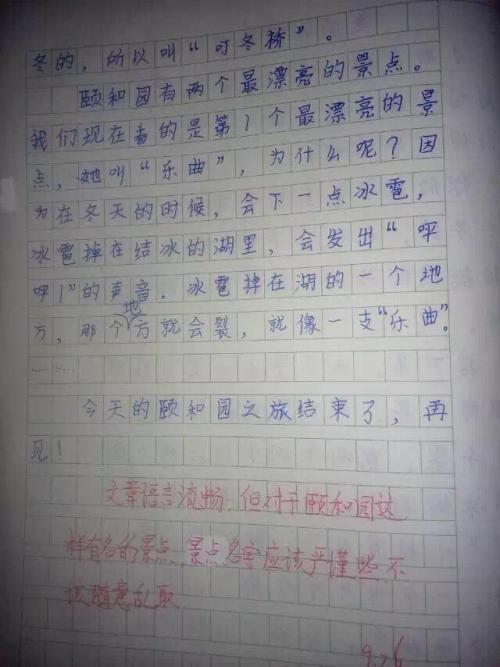 冬的，所以叫“叮冬桥”。
颐和园有两个最漂亮的景点。
我们现在看的是第1个最漂亮的景
点，她叫“乐曲”，为什么呢？因
为在冬天的时候，会下一点冰雹，
冰雹掉在结冰的湖里，会发出“呯
呯！”的声音．冰雹掉在湖的一个地
方，那个地方就会裂，就像一支“乐曲”。
……
今天的颐和园之旅结束了，再
见！
文章语言流畅，但对于颐和园这
样有名的景点，景点名字应该严谨些不
该随意乱取
9.6